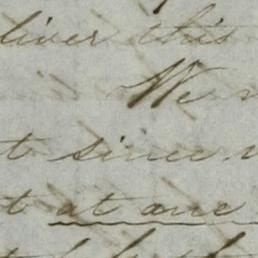 liver this
We
t since
t at one